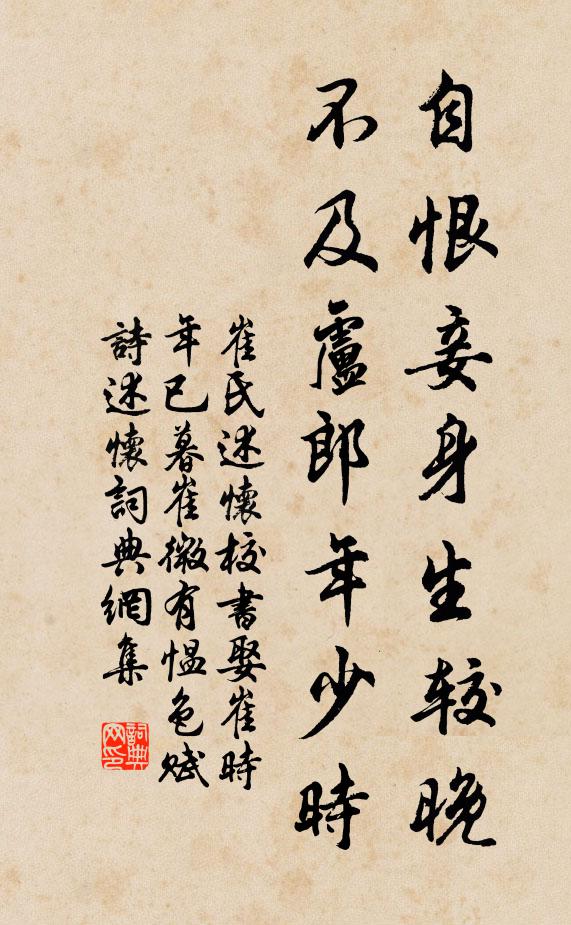 自恨妾身生较晚
不及盧郎年少時
崔氏述懷校書娶崔時
年已暮崔微有愠色赋
詩述懷詞典網集
詞典
网印